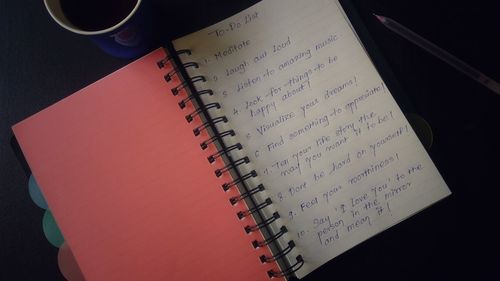 To-Do List
1. Meditate
2. Laugh out loud
3. Listen to amazing music
4. Look-for-things-to be
happy about!
5. Visualize your dreams!
6. Find something to appreciate!
7. Tell your life story the
way you want it to be!
8. Dont be hard on yourself!
9. Feel your worthiness!
10. Say "I Love You" to the
person in the mirror
and mean it!